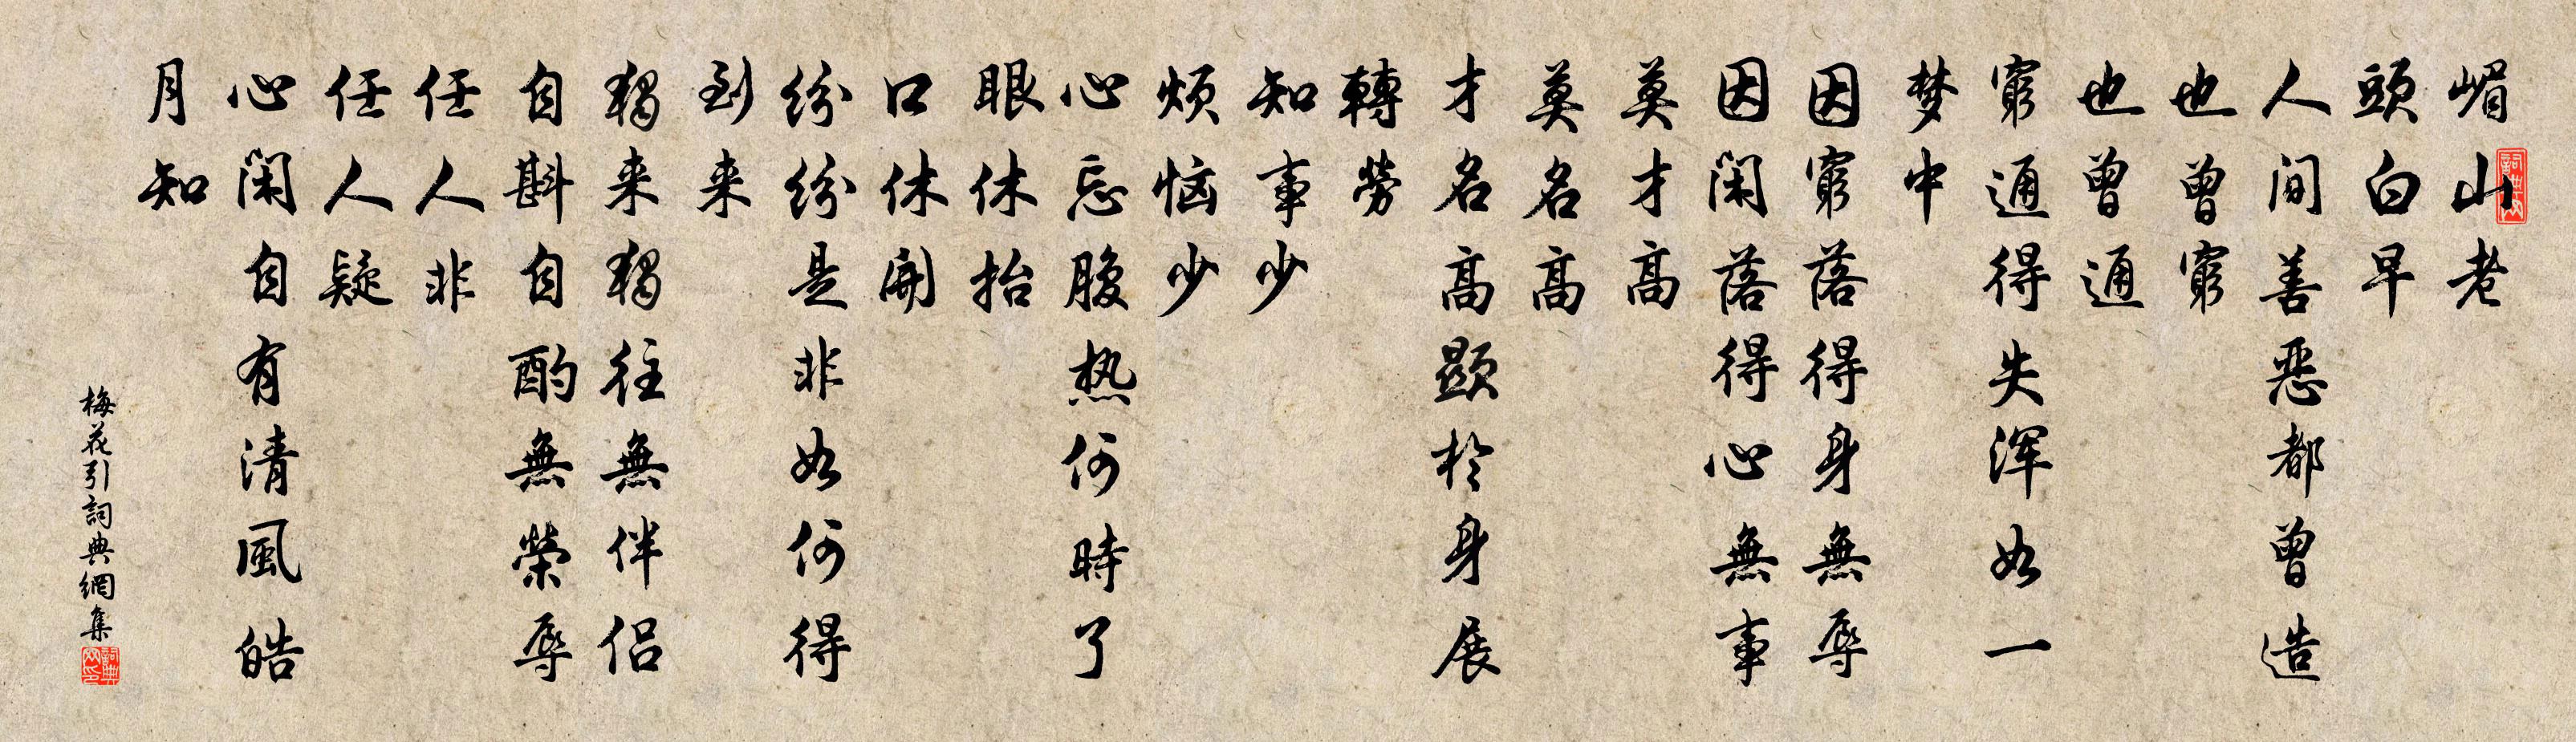 嵋山老
頭白早
人间善恶都曾造
也曾窮
也曾通
窮通得失浑如一
梦中
因窮落得身無辱
因闲落得心無事
莫才高
莫名高
才名高顕於身展
轉勞
知事少
烦恼少
心忘腹热何時了
眼休抬
口休開
纷纷是非如何得
到来
獨来獨往無伴侣
自斟自酌無榮辱
任人非
任人疑
心闲自有清風皓
月知
梅花引詞典網集
詞典網
詞典網印